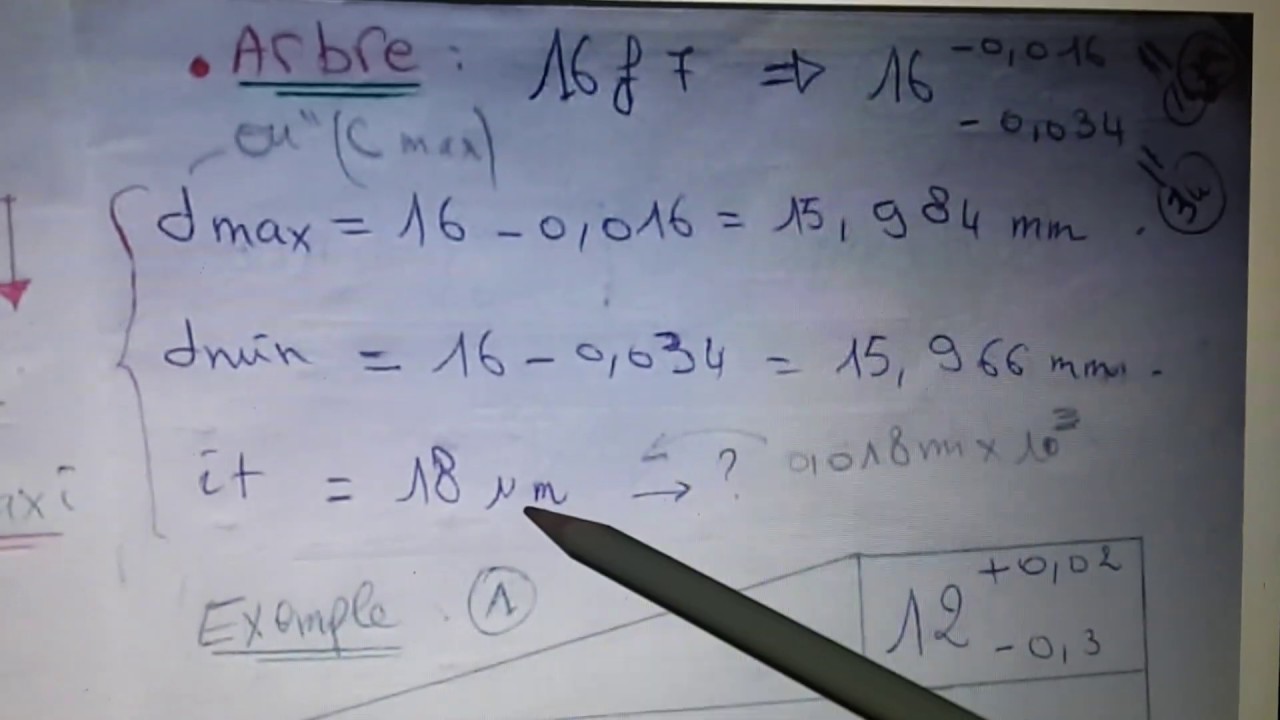 • Arbre : 16 f 7 ⇒ 16 -0,016
- 0,034
ou "(C max)
34
dmax = 16 - 0,016 = 15,984 mm .
dmin = 16 - 0,034 = 15,966 mm .
it = 18 µm → ? 0,018 m × 10³
axi
Example . 1
12 +0,02
- 0,3